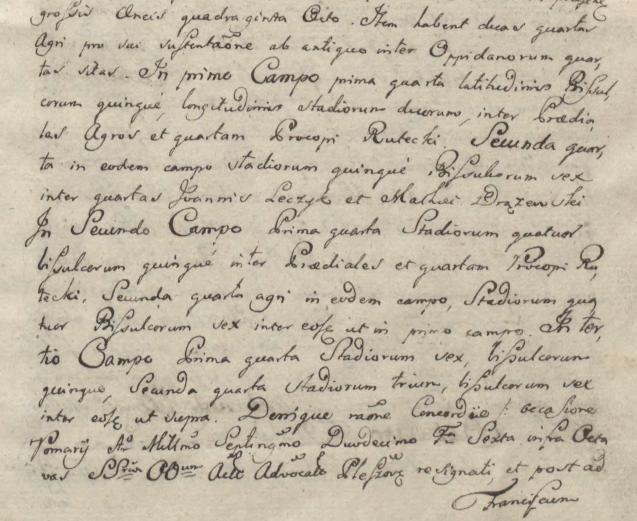 grossis Æneis quadraginta Octo. Item habent duas quartas
Agri pro sui sustentaõne ab antiquo inter Oppidanorum quar,
tas sitas. In primo Campo prima quarta latitudinis Bissul,
corum quinque, longitudinis stadiorum duorum, inter Prædia,
les Agros et quartam Procopi Rutecki. Secunda quar,
ta in eodem campo stadiorum quinque Bissulcorum sex
inter quartas Joannis Leczyk et Mathei Drązewski
In Secundo Campo Prima quarta Stadiorum quatuor
bissulcorum quinque inter Prædiales et quartam Procopi Ru
tecki, Secunda quarta agri in eodem campo, Stadiorum qua
tuor Bissulcorum sex inter eosq ut in primo campo. In ter,
tio Campo Prima quarta Stadiorum sex, bissulcorum
quinque, Secunda quarta stadiorum trium, bissulcorum sex
inter eosq ut supra. Denique raõne Concordiæ /: occasione
Pomarij Aō Millmo Septingmo Duodecimo Fa Sexta infra Octa
vas SSrū OOum Actis Advocalē resignati, et post ad
Franciscum